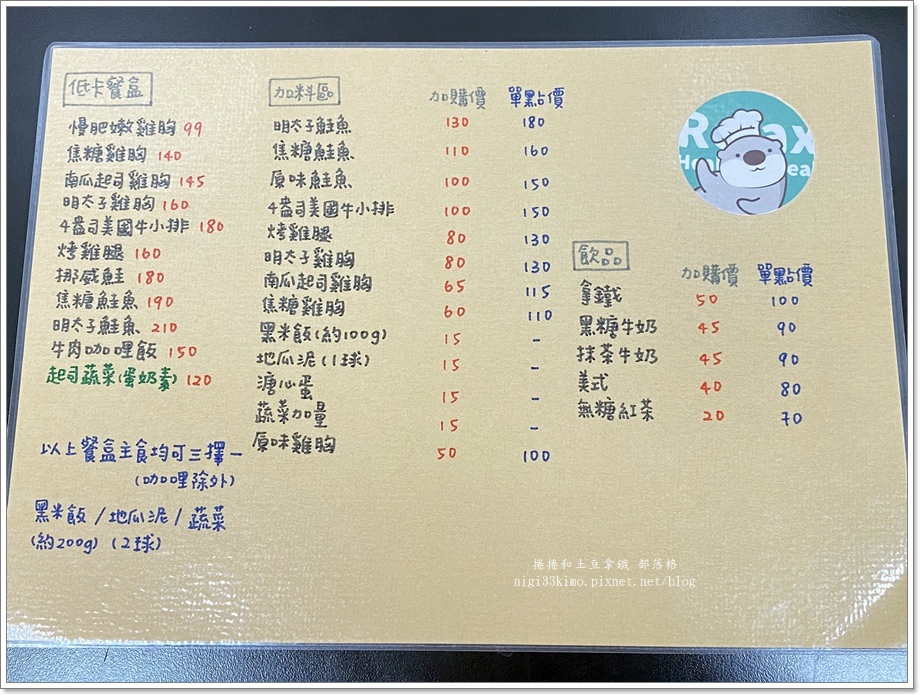 低卡餐盒
慢肥嫩雞胸 99
焦糖雞胸 140
南瓜起司雞胸 145
明太子雞胸 160
4盎司美國牛小排 180
烤雞腿 160
挪威鮭 180
焦糖鮭魚 190
明太子鮭魚 210
牛肉咖哩飯 150
起司蔬菜(蛋奶素) 120
以上餐盒主食均可三擇一
(咖哩除外)
黑米飯/地瓜泥/蔬菜
(約200g) (2球)
加料區 加購價 單點價
明太子鮭魚 130 180
焦糖鮭魚 110 160
原味鮭魚 100 150
4盎司美國牛小排 100 150
烤雞腿 80 130
明太子雞胸 80 130
南瓜起司雞胸 65 115
焦糖雞胸 60 110
黑米飯(約100g) 15 -
地瓜泥(1球) 15 -
溏心蛋 15 -
蔬菜加量 15 -
原味雞胸 50 100
飲品 加購價 單點價
拿鐵 50 100
黑糖牛奶 45 90
抹茶牛奶 45 90
美式 40 80
無糖紅茶 20 70
捲捲和土豆拿鐵 部落格
nigi33kimo.pixnet.net/blog